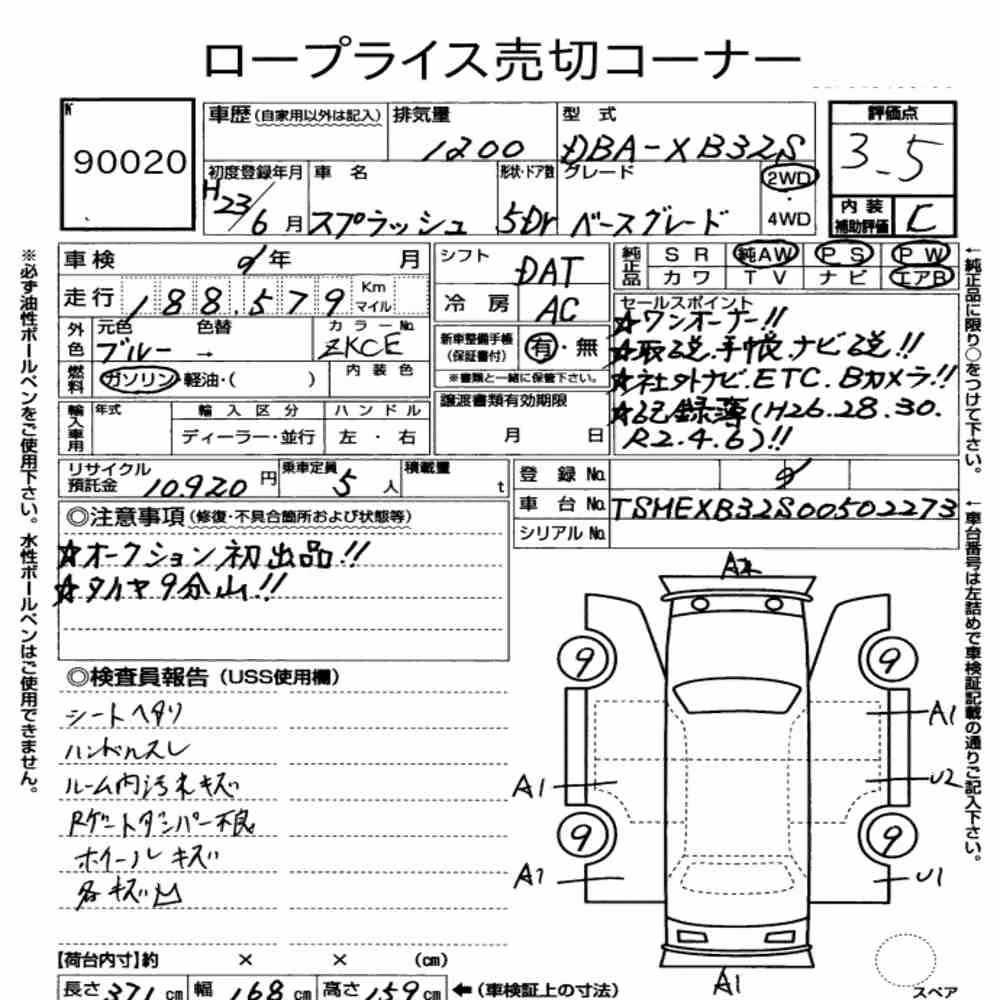 ロープライス売切コーナー
No 90020
車歴 (自家用以外は記入)
排気量 1200
型式 DBA-XB32S
評価点 3.5
内装補助評価 C
初度登録年月 H23/6月
車名 スプラッシュ
形状・ドア数 5Dr
グレード ベースグレード
2WD
4WD
車検 年 月
走行 188,579 Km マイル
外色 元色 ブルー 色替 →
カラーNo. ZKCE
燃料 ガソリン・軽油・( )
内装色
輸入車用 年式 輸入区分 ディーラー・並行 ハンドル 左・右
シフト DAT
冷房 AC
新車整備手帳 (保証書付) 有・無
※書類と一緒に保管下さい。
譲渡書類有効期限
月 日
純正品 SR 純AW PS PW
カワ TV ナビ エアB
セールスポイント
☆ワンオーナー!!
☆取説.手帳.ナビ説!!
☆社外ナビ.ETC.Bカメラ!!
☆記録簿(H26.28.30.
R2.4.6)!!
リサイクル預託金 10,920円
乗車定員 5人
積載量 t
登録No.
車台No. TSMEXB32S00502273
シリアルNo.
◎注意事項 (修復・不具合箇所および状態等)
☆オークション初出品!!
☆タイヤ9分山!!
◎検査員報告 (USS使用欄)
シートヘタリ
ハンドルスレ
ルーム内汚れキズ
Rゲートダンパー不良
ホイールキズ
各キズ凹
A2
9 9
A1
A1 U2
9 9
A1 U1
A1
スペア
【荷台内寸】約 × × (cm)
長さ 371 cm 幅 168 cm 高さ 159 cm ←(車検証上の寸法)
※必ず油性ボールペンをご使用下さい。水性ボールペンはご使用できません。
←純正品に限り○をつけて下さい。
←車台番号は左詰めで車検証記載の通りご記入下さい。